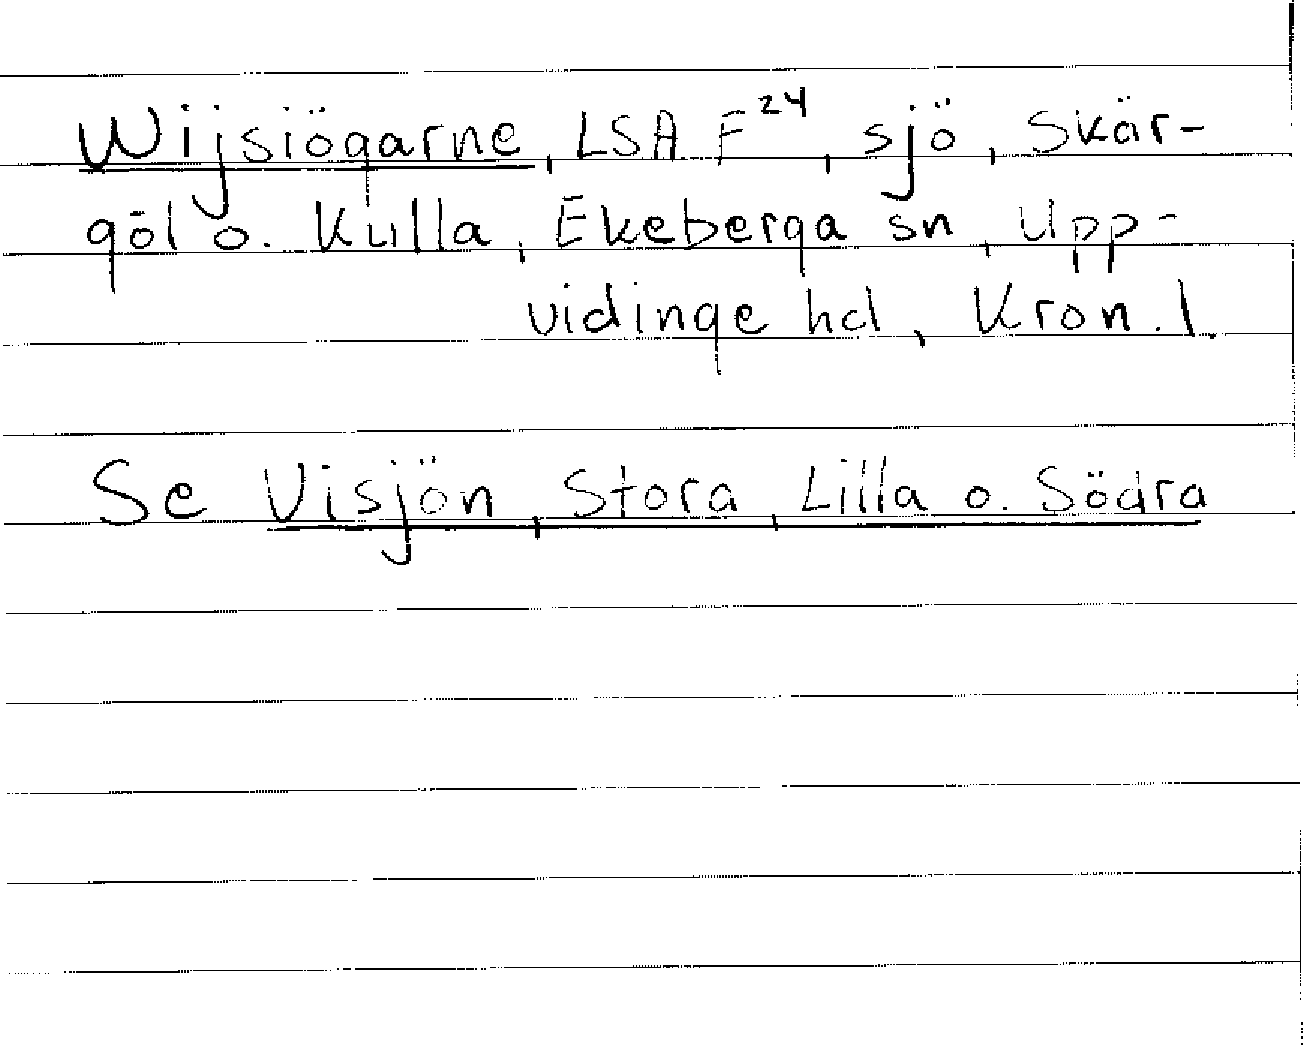 Wijsiögarne, LSA F24, sjö, Skär-
göl o. Kulla, Ekeberga sn, Upp-
vidinge hd, Kron. l.
Se Visjön, Stora, Lilla o. Södra